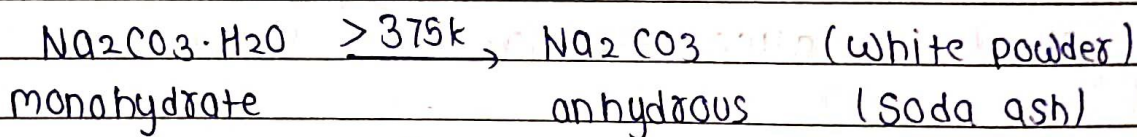 Na2CO3·H2O >375k → Na2CO3 (white powder)
monohydrate anhydrous (soda ash)